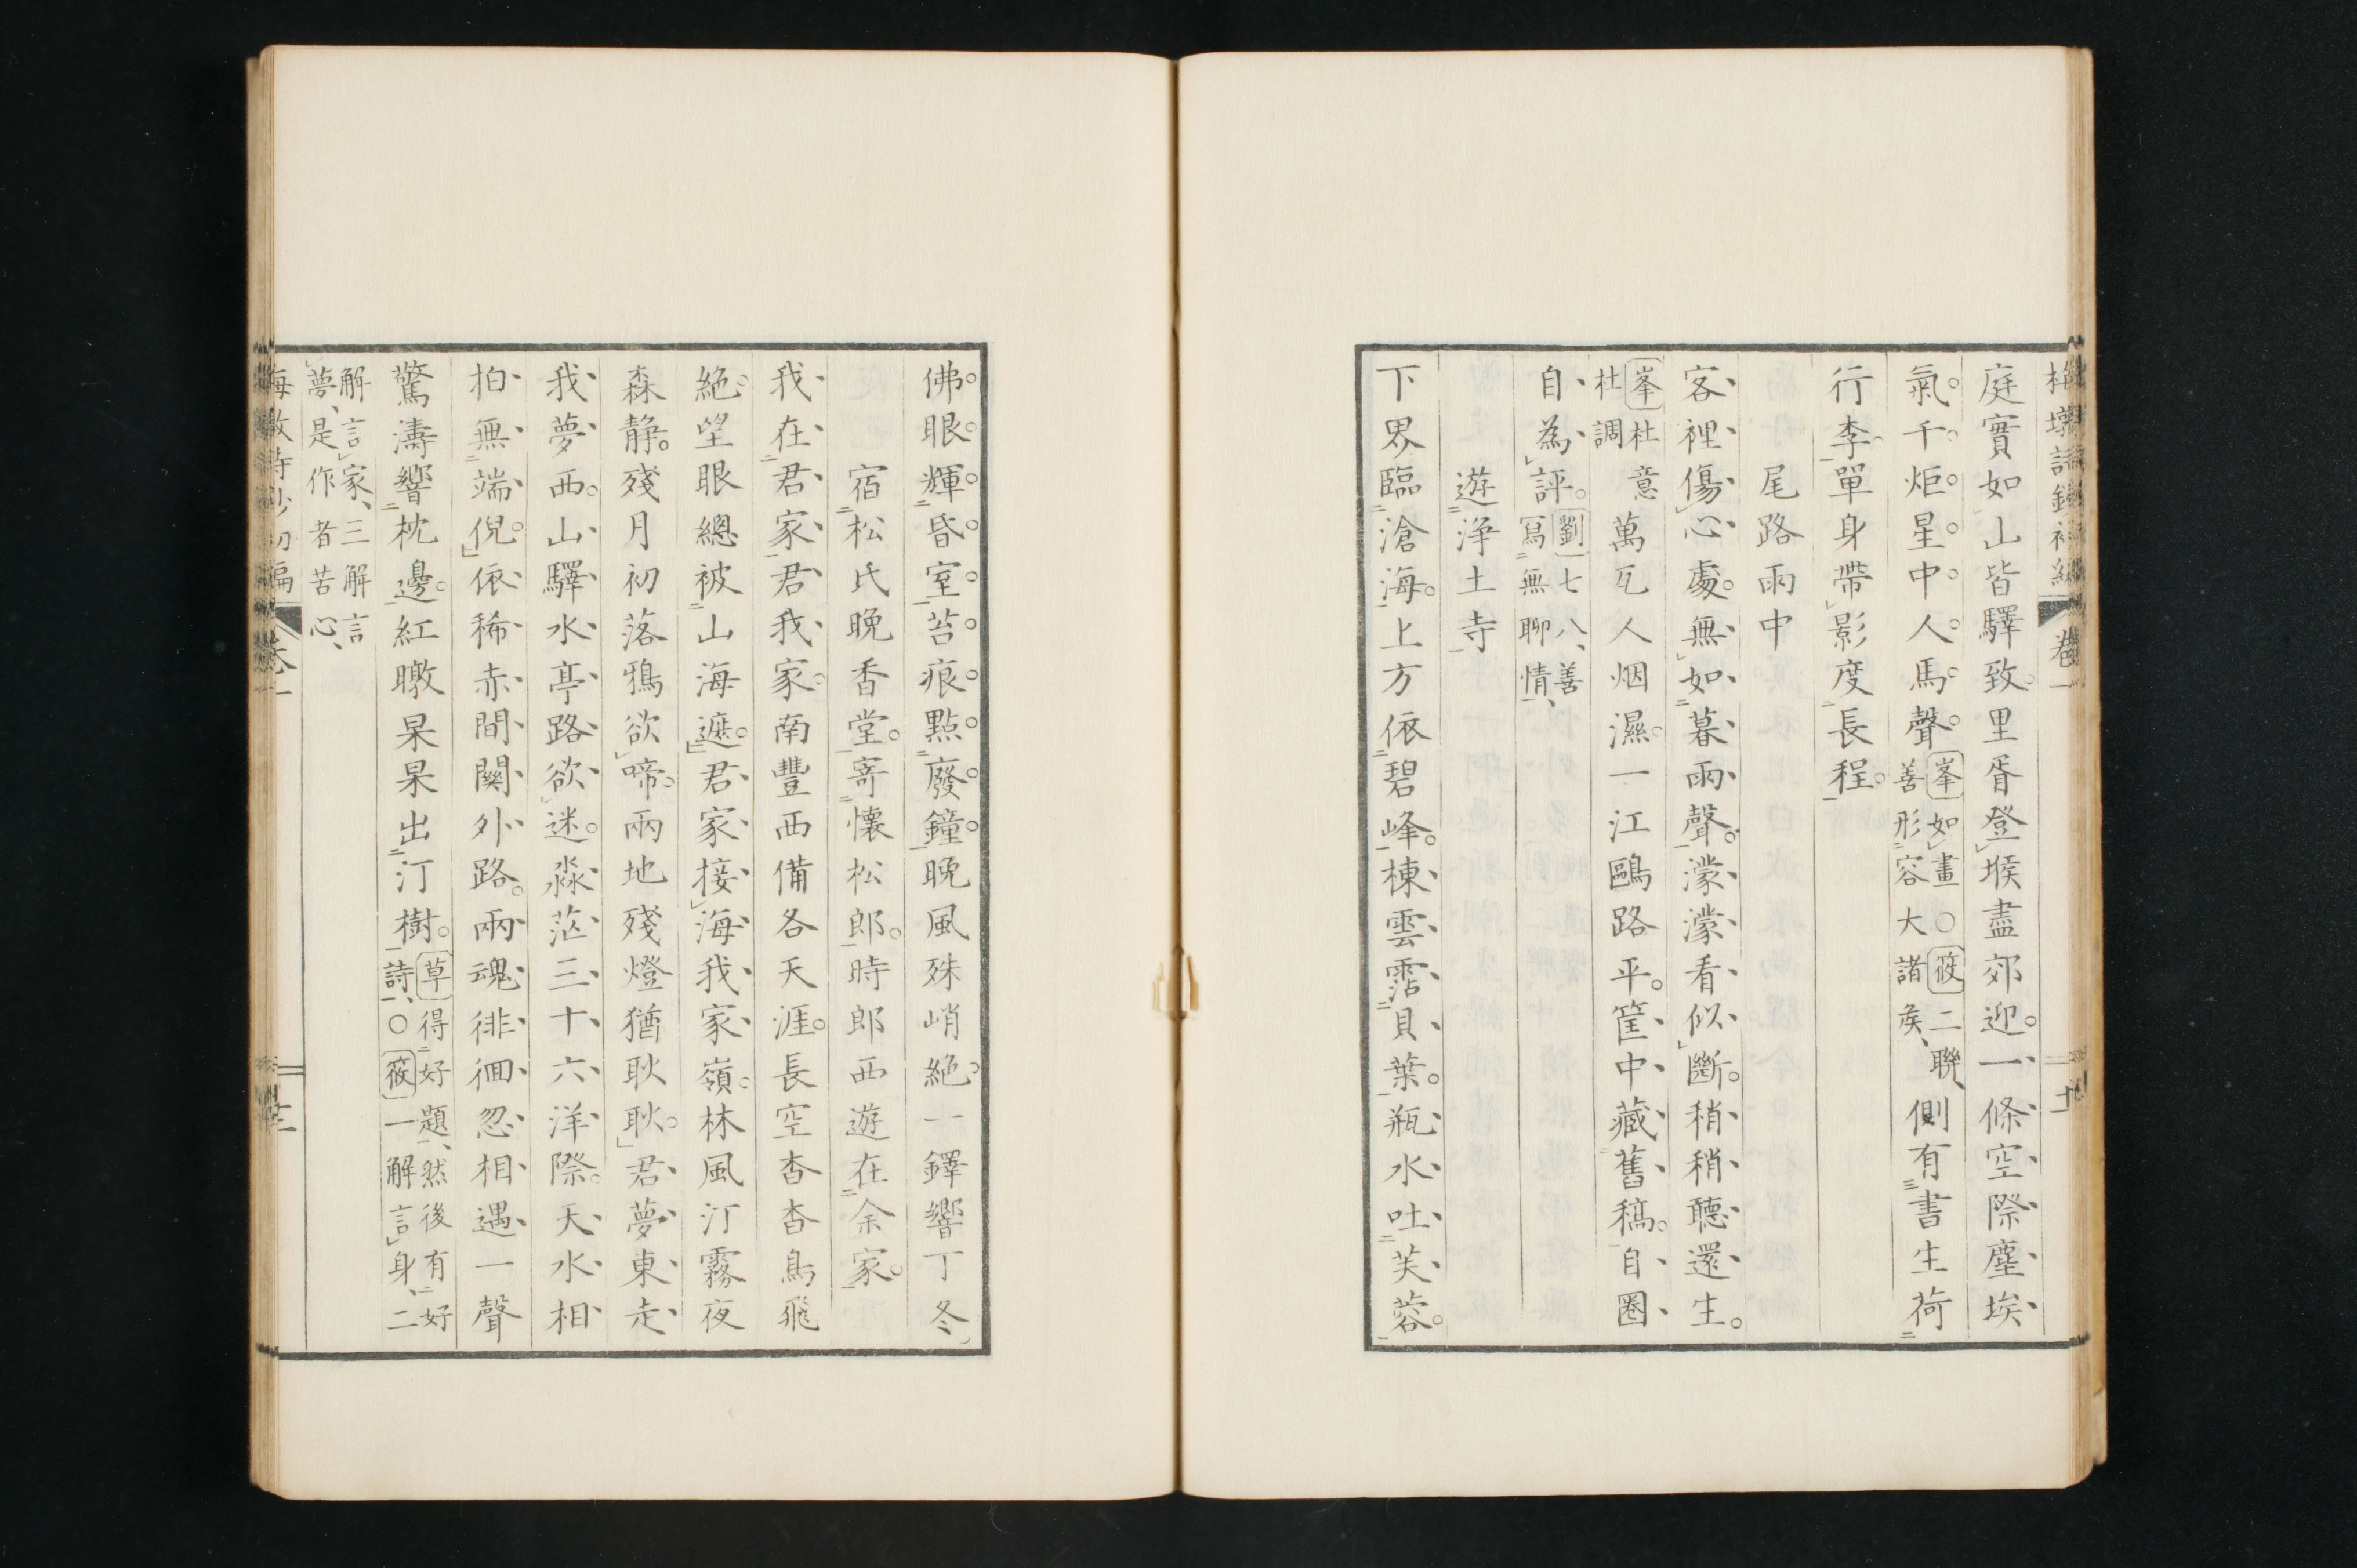 庭實如山皆驛致里胥登堠盡郊迎一條空際塵埃
氣千炬星中人馬聲
峯如畫○筱二聯
善形容大諸矦
側有書生荷
行李單身帶影度長程
尾路雨中
客裡傷心處無如暮雨聲濛濛看似斷稍稍聽還生
峯杜意
杜調
萬瓦人烟濕一江鷗路平筐中藏舊稿自圈
自為評
劉七八善
寫無聊情
遊淨土寺
下界臨滄海上方依碧峰棟雲霑貝葉瓶水吐芙蓉
卷一
佛眼輝昏室苔痕點廢鐘晚風殊峭絶一鐸響丁冬
宿松氏晚香堂寄懷松郎時郎西遊在余家
我在君家君我家南豐西備各天涯長空杳杳鳥飛
絶望眼總被山海遮君家接海我家嶺林風汀霧夜
森静殘月初落鴉欲啼兩地殘燈猶耿耿君夢東走
我夢西山驛水亭路欲迷淼茫三十六洋際天水相
拍無端倪依稀赤間關外路兩魂徘徊忽相遇一聲
驚濤響枕邊紅暾杲杲出汀樹
草得好題然後有好
詩○筱一解言身二
解言家三解言
夢是作者苦心